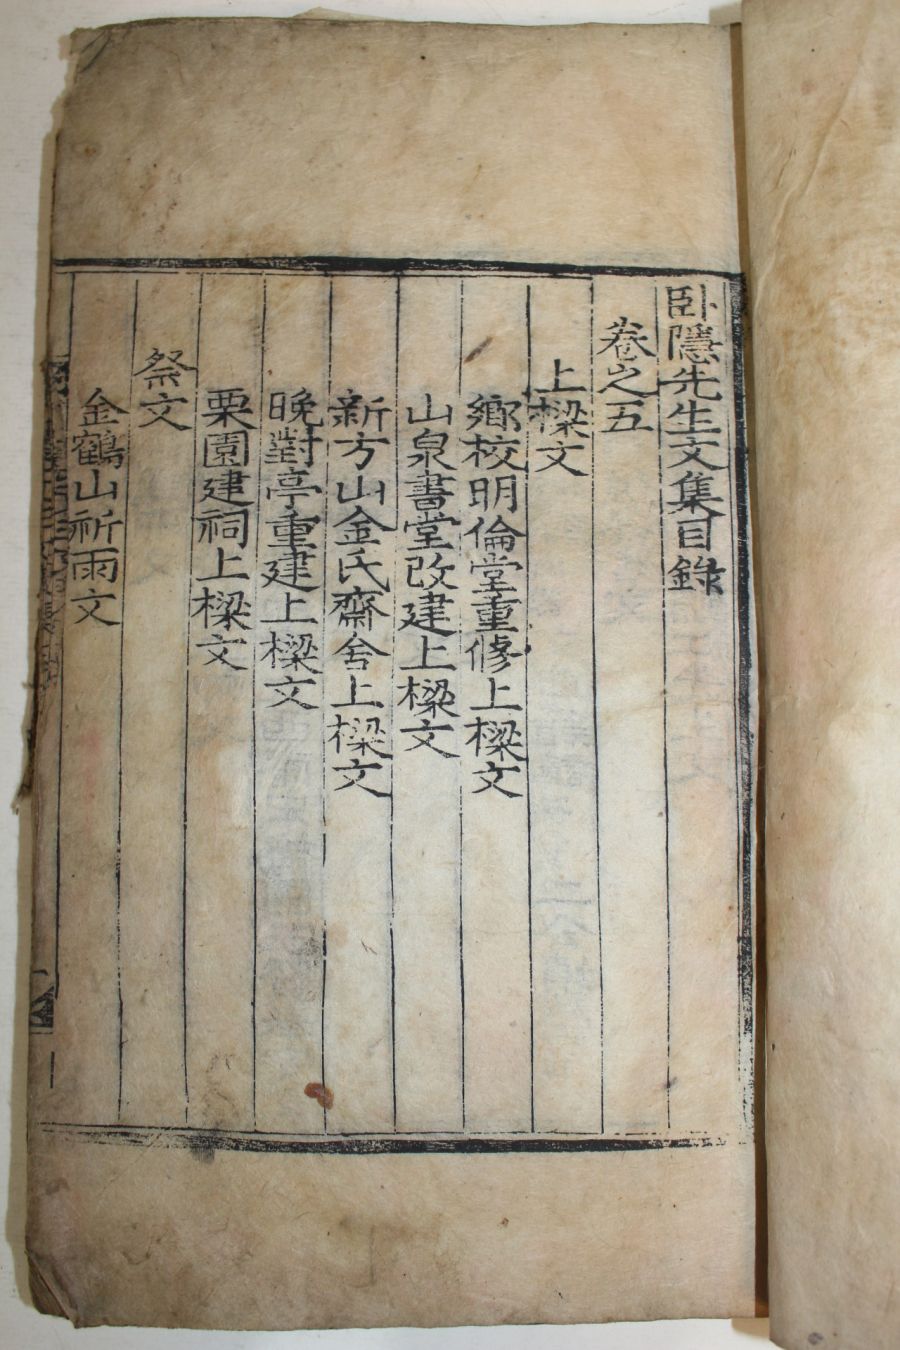 卧隱先生文集目錄
卷之五
上樑文
鄉校明倫堂重修上樑文
山泉書堂改建上樑文
新方山金氏齋舍上樑文
晩對亭重建上樑文
栗園建祠上樑文
祭文
金鶴山祈雨文